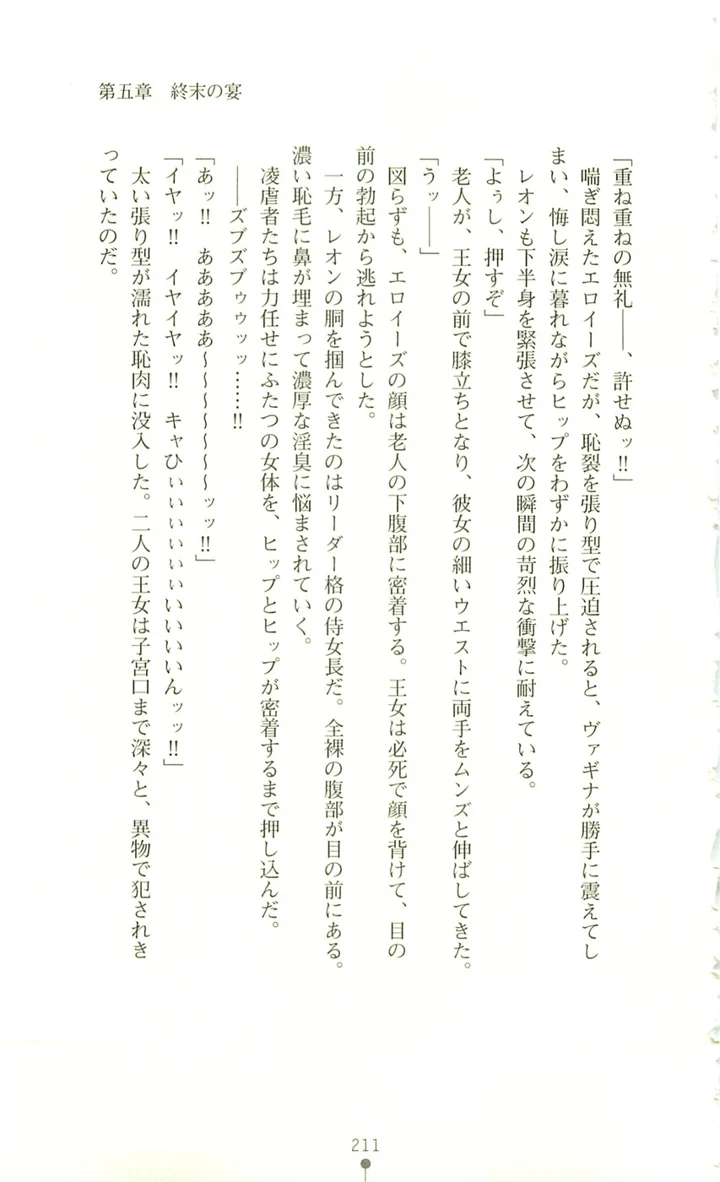 第五章　終末の宴
「重ね重ねの無礼――、許せぬッ!!」
喘ぎ悶えたエロイーズだが、恥裂を張り型で圧迫されると、ヴァギナが勝手に震えてし
まい、悔し涙に暮れながらヒップをわずかに振り上げた。
レオンも下半身を緊張させて、次の瞬間の苛烈な衝撃に耐えている。
「よぅし、押すぞ」
老人が、王女の前で膝立ちとなり、彼女の細いウエストに両手をムンズと伸ばしてきた。
「うッ――」
図らずも、エロイーズの顔は老人の下腹部に密着する。王女は必死で顔を背けて、目の
前の勃起から逃れようとした。
一方、レオンの胴を掴んできたのはリーダー格の侍女長だ。全裸の腹部が目の前にある。
濃い恥毛に鼻が埋まって濃厚な淫臭に悩まされていく。
凌虐者たちは力任せにふたつの女体を、ヒップとヒップが密着するまで押し込んだ。
――ズブズブゥゥッッ……!!
「あッ!!　ああああぁ～～～～～～～ッッ!!」
「イヤッ!!　イヤイヤッ!!　キャひぃぃぃぃぃぃいいいいんッッ!!」
太い張り型が濡れた恥肉に没入した。二人の王女は子宮口まで深々と、異物で犯されき
っていたのだ。
211